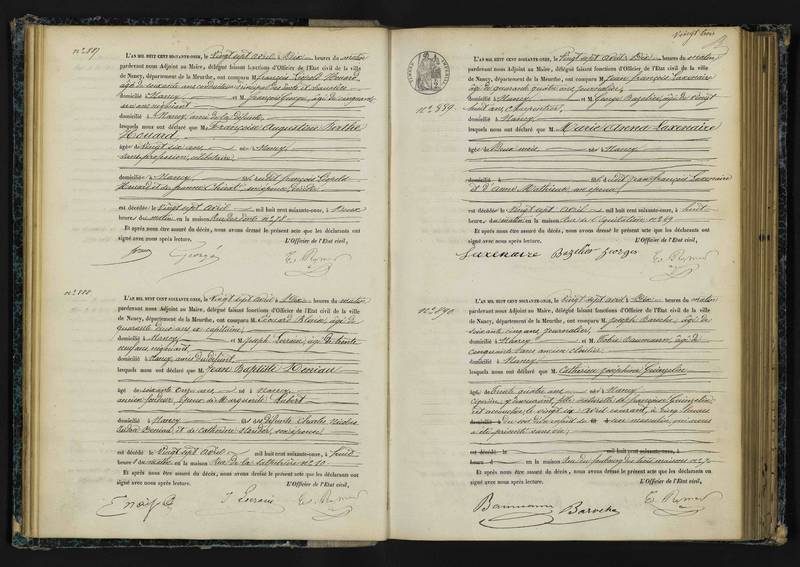 n° 887
L'AN MIL HUIT CENT SOIXANTE-ONZE, le Vingt sept avril à Dix heures du matin
pardevant nous Adjoint au Maire, délégué faisant fonctions d'Officier de l'Etat civil de la ville
de Nancy, département de la Meurthe, ont comparu M. françois Léopold Houard,
âgé de soixante ans conducteur principal des ponts et chaussées
domicilié à Nancy et M. françois Georges, âgé de cinquante
un ans négociant
domicilié à Nancy, ami de la défunte,
lesquels nous ont déclaré que M. françoise Augustine Berthe
Houard
âgée de vingt six ans née à Nancy
sans profession, célibataire
domicilié à Nancy dudit françois Léopold
Houard et de
est décédée le vingt sept avril mil huit cent soixante-onze, à
heures du matin en la maison Rue n° 78
Et après nous être assuré du décès, nous avons dressé le présent acte que les déclarants ont
signé avec nous après lecture.
L'Officier de l'Etat civil,
Georges
n° 888
L'AN MIL HUIT CENT SOIXANTE-ONZE, le Vingt sept avril à Dix heures du matin
pardevant nous Adjoint au Maire, délégué faisant fonctions d'Officier de l'Etat civil de la ville
de Nancy, département de la Meurthe, ont comparu M. âgé de
quarante deux ans capitaine,
domicilié à Nancy et M. Joseph Lorrain, âgé de trente
neuf ans, négociant
domicilié à Nancy, amis du défunt,
lesquels nous ont déclaré que M. Jean Baptiste
âgé de soixante onze ans né à Nancy
ancien époux de Marguerite Aubert
domicilié à Nancy Charles Nicolas
et de Catherine son épouse
est décédé le Vingt sept avril mil huit cent soixante-onze, à huit
heures du matin en la maison Rue de la Salpêtrière n° 10
Et après nous être assuré du décès, nous avons dressé le présent acte que les déclarants ont
signé avec nous après lecture.
L'Officier de l'Etat civil,
J Lorrain
Vingt trois
n° 889
L'AN MIL HUIT CENT SOIXANTE-ONZE, le Vingt sept avril à Dix heures du matin
pardevant nous Adjoint au Maire, délégué faisant fonctions d'Officier de l'Etat civil de la ville
de Nancy, département de la Meurthe, ont comparu M. Jean françois Laxenaire
âgé de quarante quatre ans, journalier,
domicilié à Nancy et M. George Bazelier, âgé de vingt
huit ans, charpentier,
domicilié à Nancy
lesquels nous ont déclaré que M. Marie Laxenaire
âgée de Deux mois née à Nancy
domicilié à dudit Jean françois Laxenaire
et d'Anne Mathieu son épouse
est décédée le Vingt sept avril mil huit cent soixante-onze, à huit
heures du matin en la maison Rue de l'équitation n° 69
Et après nous être assuré du décès, nous avons dressé le présent acte que les déclarants ont
signé avec nous après lecture.
L'Officier de l'Etat civil,
Laxenaire Bazelier Georges
n° 890
L'AN MIL HUIT CENT SOIXANTE-ONZE, le Vingt sept avril à Dix heures du matin
pardevant nous Adjoint au Maire, délégué faisant fonctions d'Officier de l'Etat civil de la ville
de Nancy, département de la Meurthe, ont comparu M. Joseph Baroche, âgé de
soixante cinq ans, journalier,
domicilié à Nancy et M. Baumann, âgé de
cinquante ans ancien cloutier
domicilié à Nancy
lesquels nous ont déclaré que M. Catherine Joséphine
âgée de trente quatre ans née à Nancy
fille naturelle de françoise
est accouchée le vingt six avril courant, à
domicilié à d'un enfant du sexe masculin, qui nous
a été présenté sans vie,
est décédé le mil huit cent soixante-onze, à
heures en la maison Rue du faubourg des trois maisons n°
Et après nous être assuré du décès, nous avons dressé le présent acte que les déclarants ont
signé avec nous après lecture.
L'Officier de l'Etat civil,
Baumann Baroche